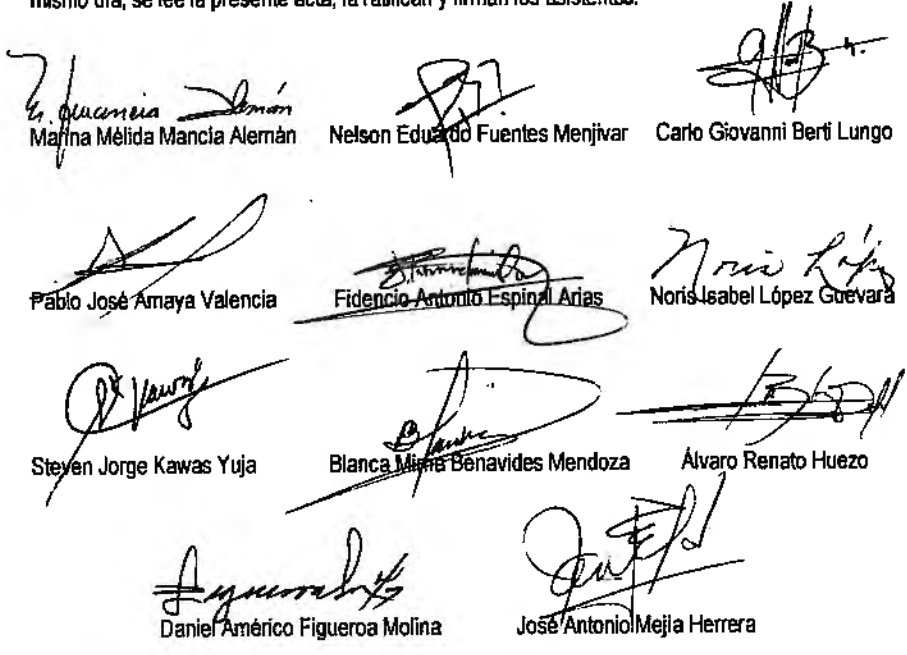 mismo día, se lee la presente acta, la ratifican y firman los asistentes.
Marina Mélida Mancía Alemán Nelson Eduardo Fuentes Menjivar Carlo Giovanni Berti Lungo
Pablo José Amaya Valencia Fidencio Antonio Espinal Arias Noris López Noris Isabel López Guevara
Steven Jorge Kawas Yuja Blanca Mirna Benavides Mendoza Álvaro Renato Huezo
Daniel Américo Figueroa Molina José Antonio Mejía Herrera